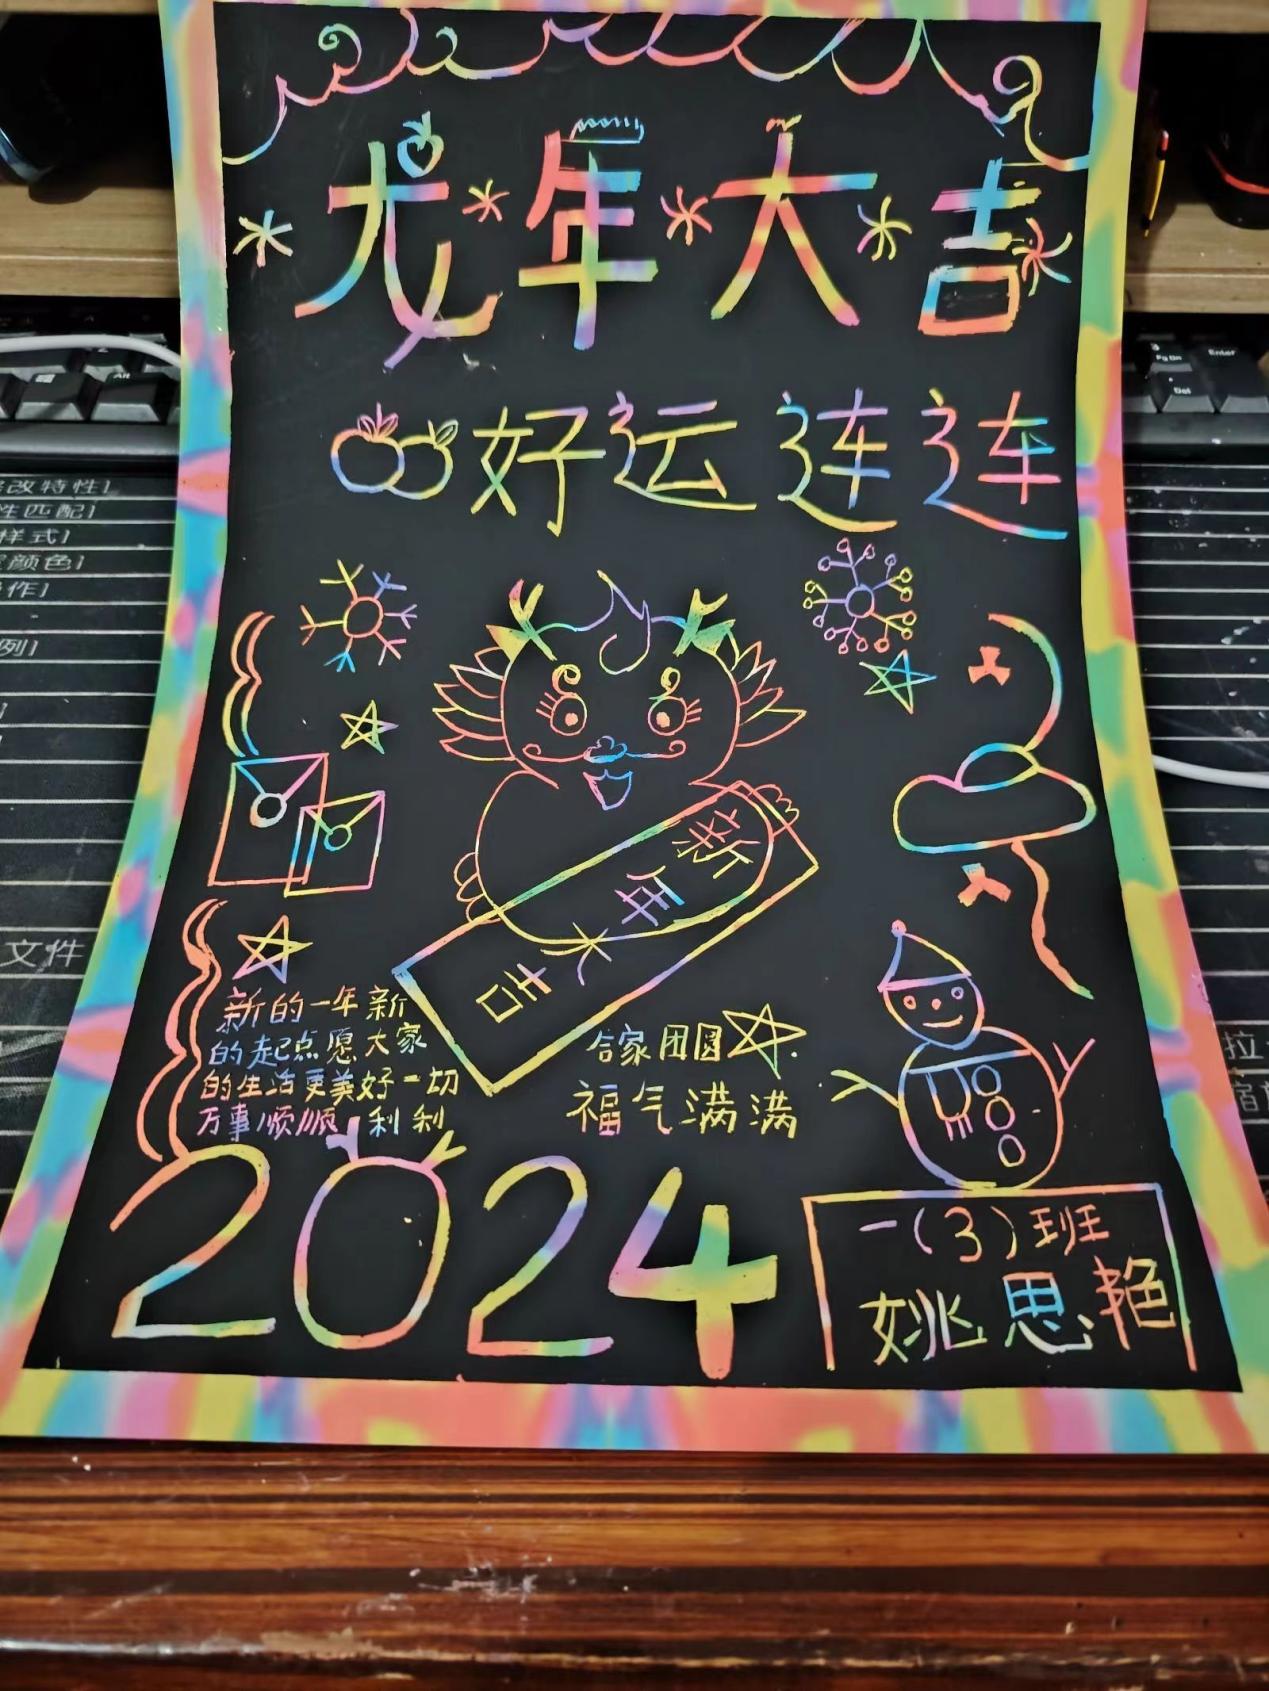 龙年大吉
好运连连
新年大吉
新的一年新
的起点愿大家
的生活更美好一切
万事顺顺利利
合家团圆
福气满满
2024
一(3)班
姚思艳
改特性]
性匹配]
样式]
颜色]
作]
例]
文件
Alt
3
Pg Dn
Enter
Del
拉